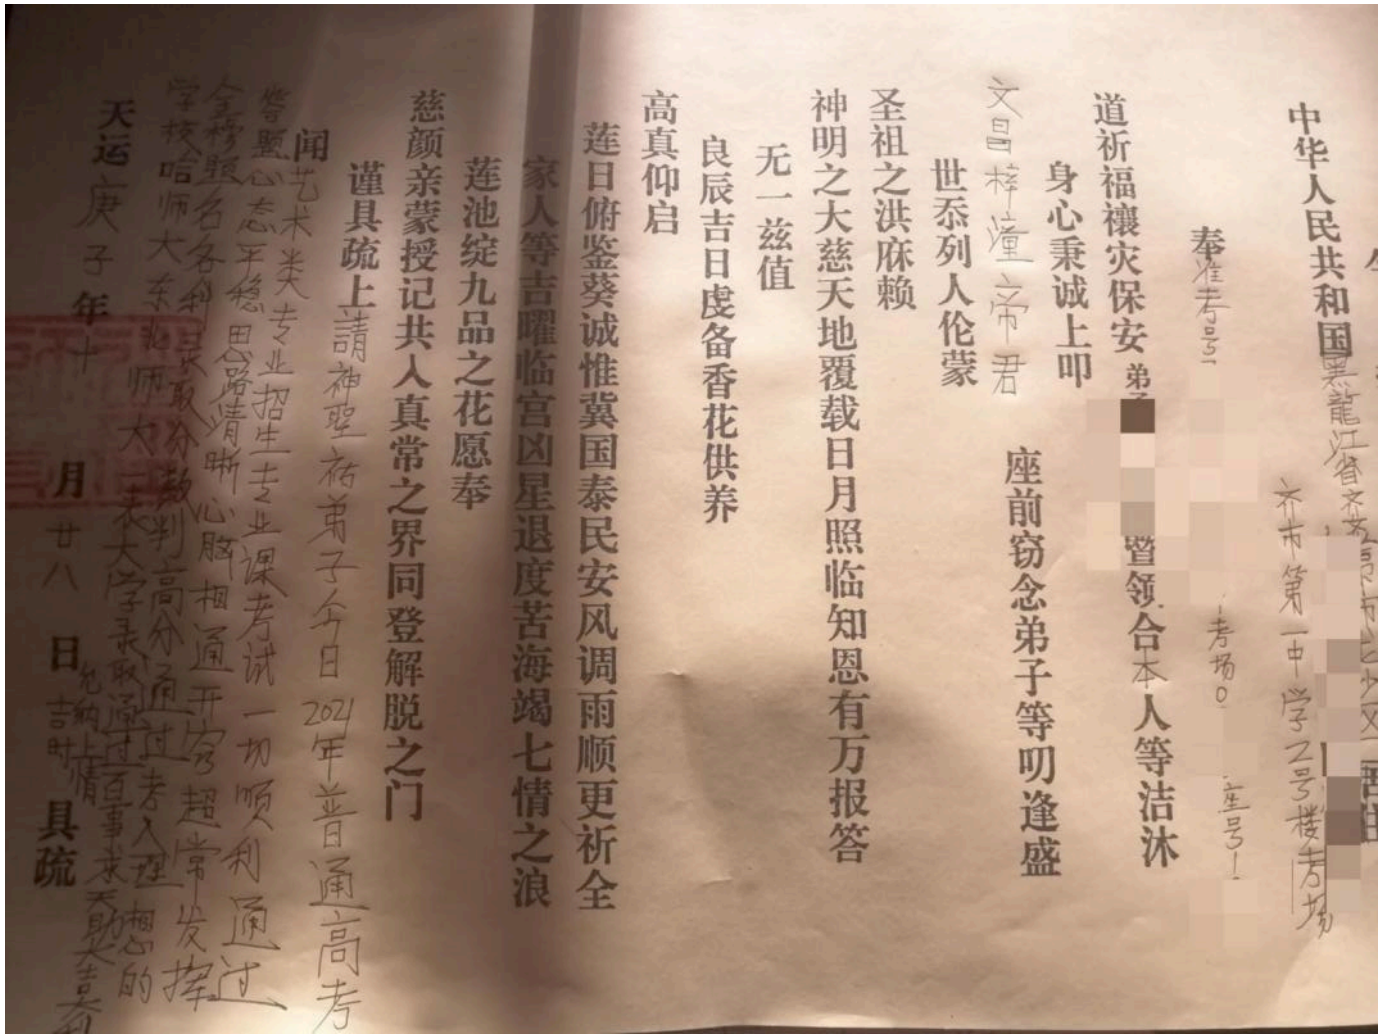 中华人民共和国黑龍江省齐齐
齐市第一中学2号楼考场
奉准考号
考场0
座号1
道祈福禳灾保安弟子
暨领合本人等洁沐
身心秉诚上叩
文昌梓潼帝君
座前窃念弟子等叨逢盛
世忝列人伦蒙
圣祖之洪庥赖
神明之大慈天地覆载日月照临知恩有万报答
无一兹值
良辰吉日虔备香花供养
高真仰启
莲日俯鉴葵诚惟冀国泰民安风调雨顺更祈全
家人等吉曜临宫凶星退度苦海竭七情之浪
莲池绽九品之花愿奉
慈颜亲蒙授记共入真常之界同登解脱之门
谨具疏上請神聖祐弟子今日2021年普通高考
闻艺术类专业招生专业课考试一切顺利通过
答题心态平稳思路清晰心脑相通开窍超常发挥
金榜题名各科录取分数判高分通过考入理想的
学校哈师大东北师大表大学录取通过百事求天助大吉大利
允纳上情
天运庚子年十月廿八日吉时具疏